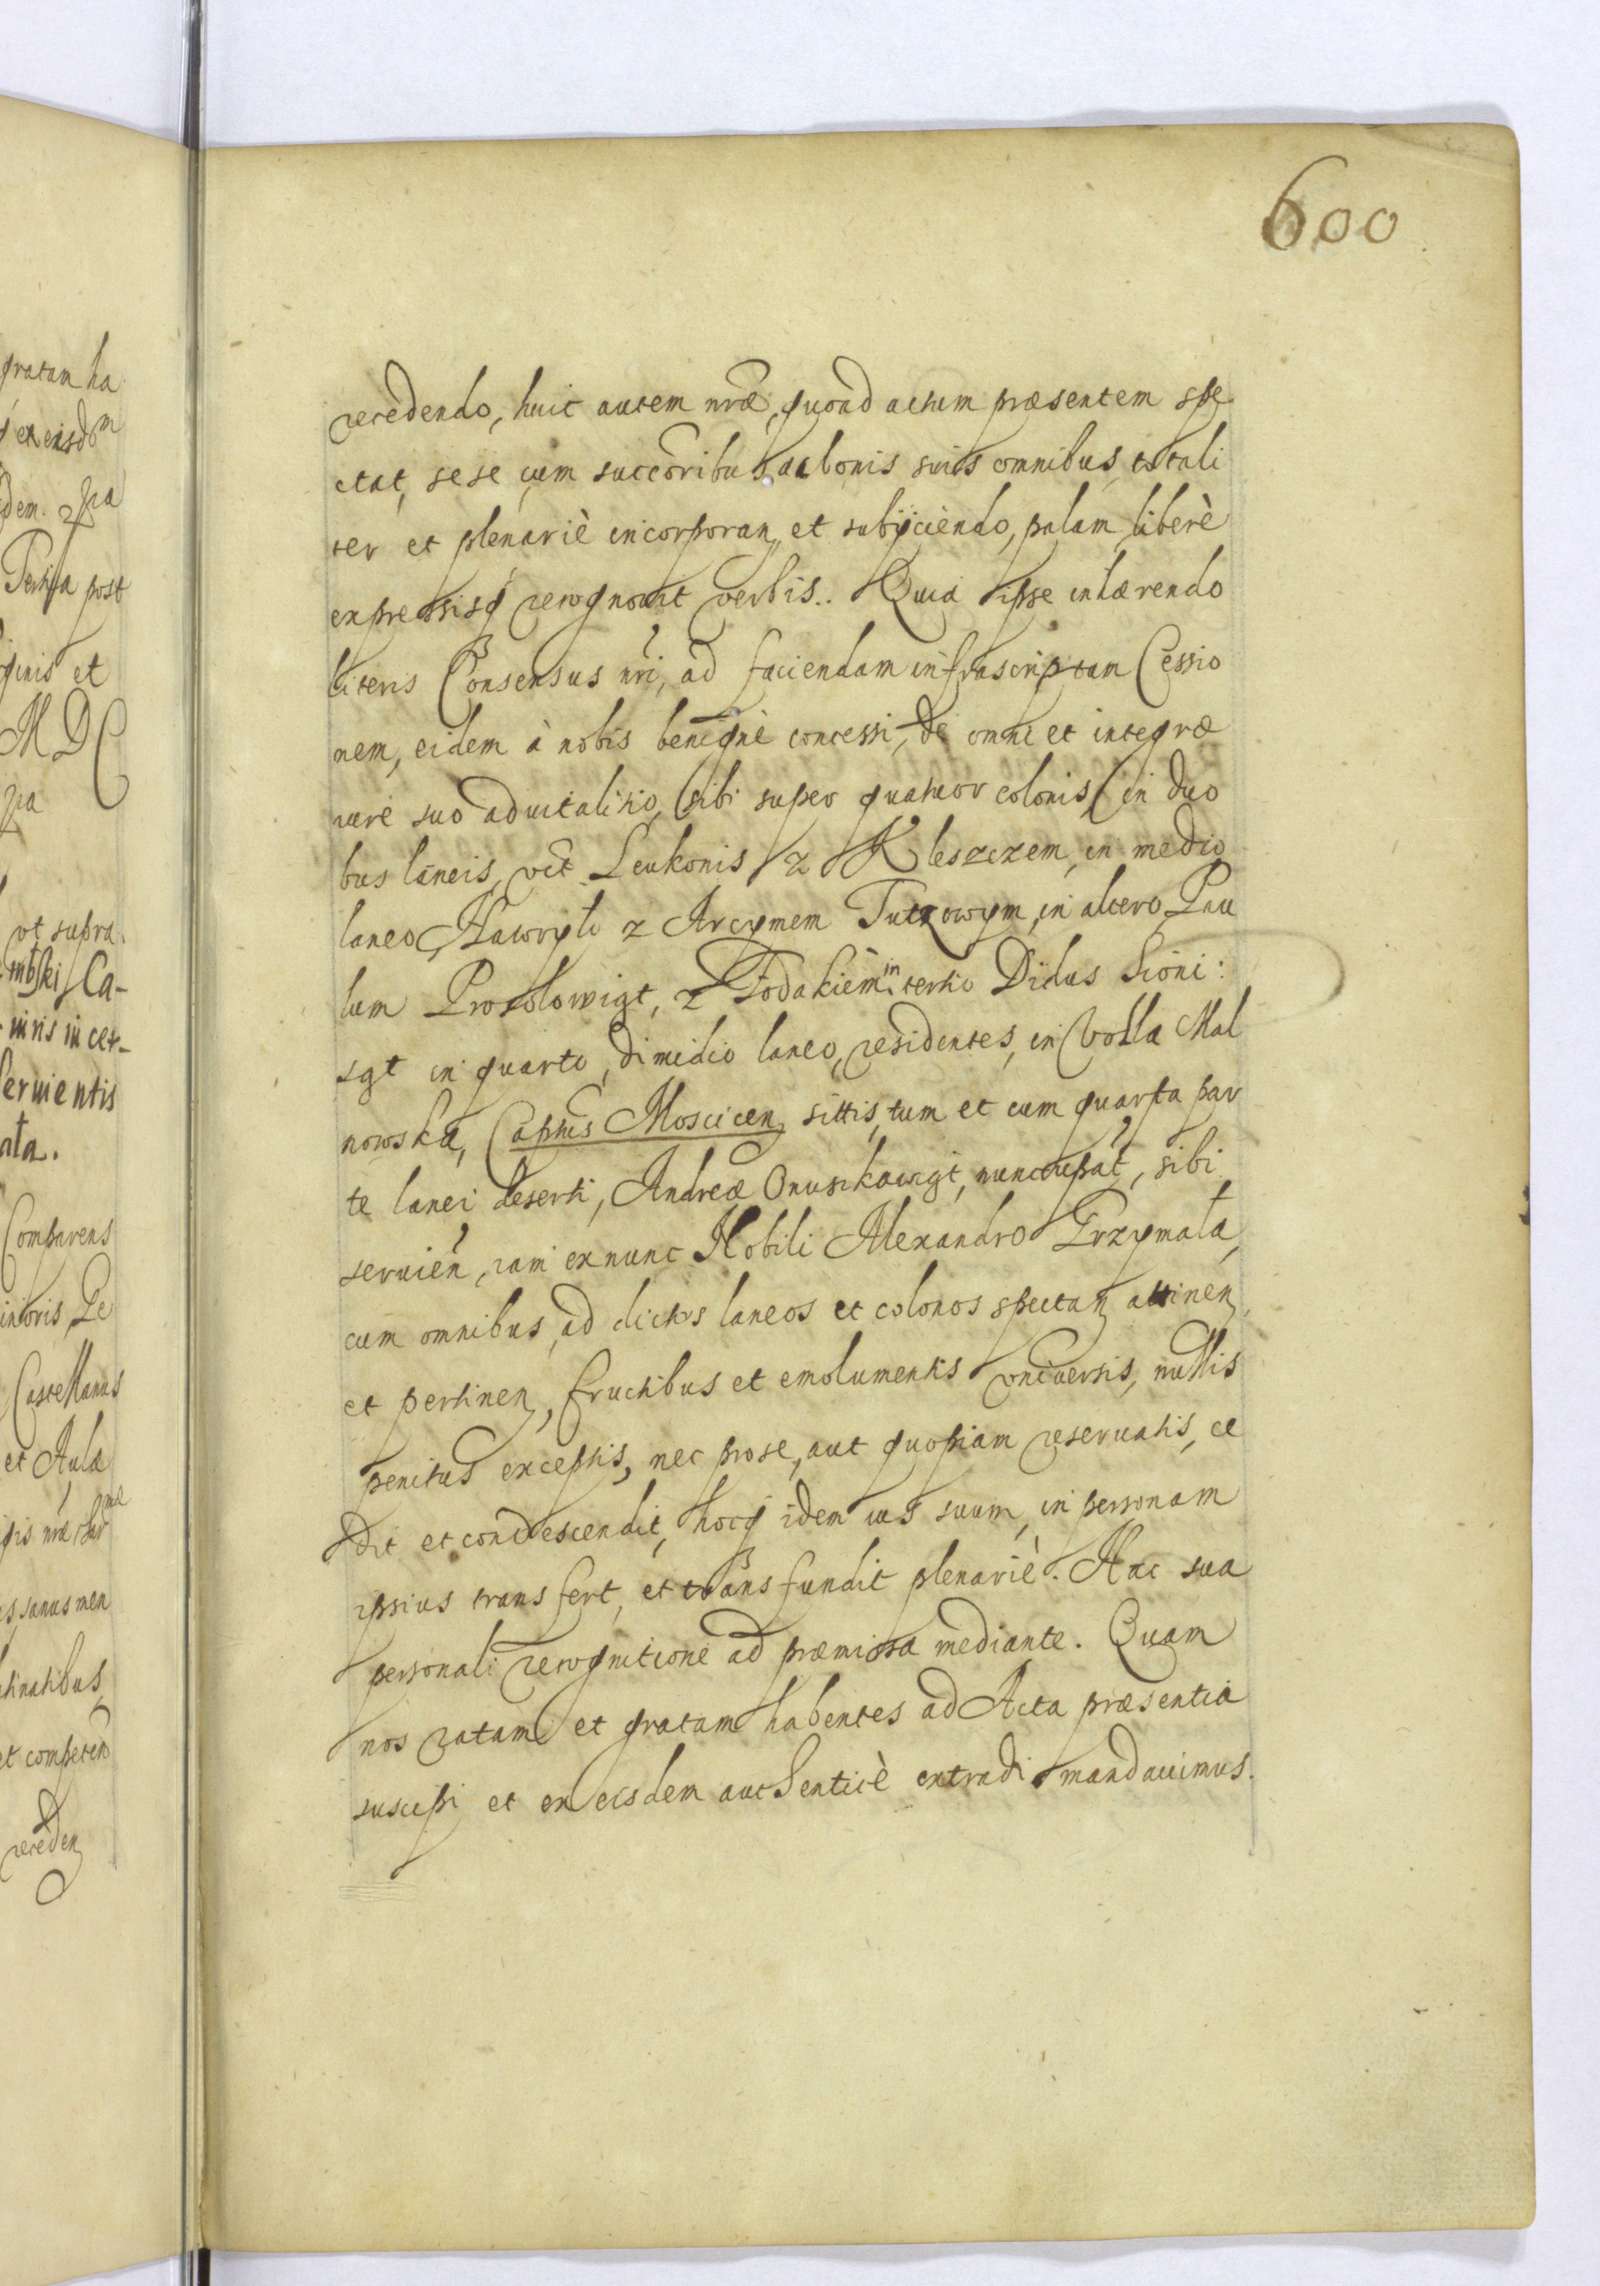 600
recedendo, huic autem nr̃æ, quoad actum præsentem spe
ctat, sese cum succōribus ac bonis suis omnibus totali
ter et plenariè incorporan, et subÿciendo, palam liberè
expressisq́ recognouit verbis. Quia ipse inhærendo
literis Consensus nr̃i, ad faciendam infrascriptam Cessio
nem, eidem à nobis benignè concessi, de omni et integræ
iure suo aduitalitio, sibi super quatuor colonis in duo
bus laneis, vct Leukonis z Kleszczem, in medio
laneo, Hawryło z Arcymem Tutzowym, in altero, Pau
lum Prosolowigt, z Fodakiem in tertio Didus
sgt in quarto, dimidio laneo, residentes, in Volla Mal
nowska, Captũs Moscicen, sittis, tum et cum quarta par
te lanei deserti, Andreæ Onuszkowigt, nuncupat, sibi
seruien, iam ex nunc Nobili Alexandro Przymała,
cum omnibus, ad dictos laneos et colonos spectan attinen
et pertinen, fructibus et emolumentis vniuersis, nullis
penitus exceptis, nec pro se, aut quopiam reseruatis, ce
dit et condescendit, hocq́ idem ius suum, in personam
ipsius transfert, et transfundit plenariè. Hac sua
personali recognitione ad præmissa mediante. Quam
nos ratam et gratam habentes ad Acta præsentia
suscipi et ex eisdem authenticè extradi mandauimus.
gratam ha
ex eisdem
Pertica post
ginis et
M D C
vt supra
Ca-
niris in cer-
Seruientis
ata.
Comparens
Castellanus
et Aulæ
sanus men
et competen
receden